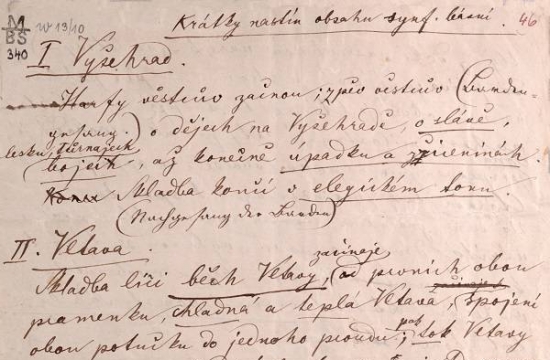 M
BS
340
w 13/10
Krátký nastín obsahu synf. básní 46
I Vyšehrad.
Harfy věštcův začnou; zpěv věštcův (Barden-
gesang.) o dějech na Vyšehradě, o slávě,
lesku, turnajích
bojích, až konečně úpadku a zříceninách.
Skladba končí v elegickém tonu.
(Nachgesang der Barden)
II. Vltava.
začínaje
Skladba líčí běh Vltavy, od prvních obou
pramenku, chladná a teplá Vltava, spojení
obou potučku do jednoho proudu; pak tok Vltavy